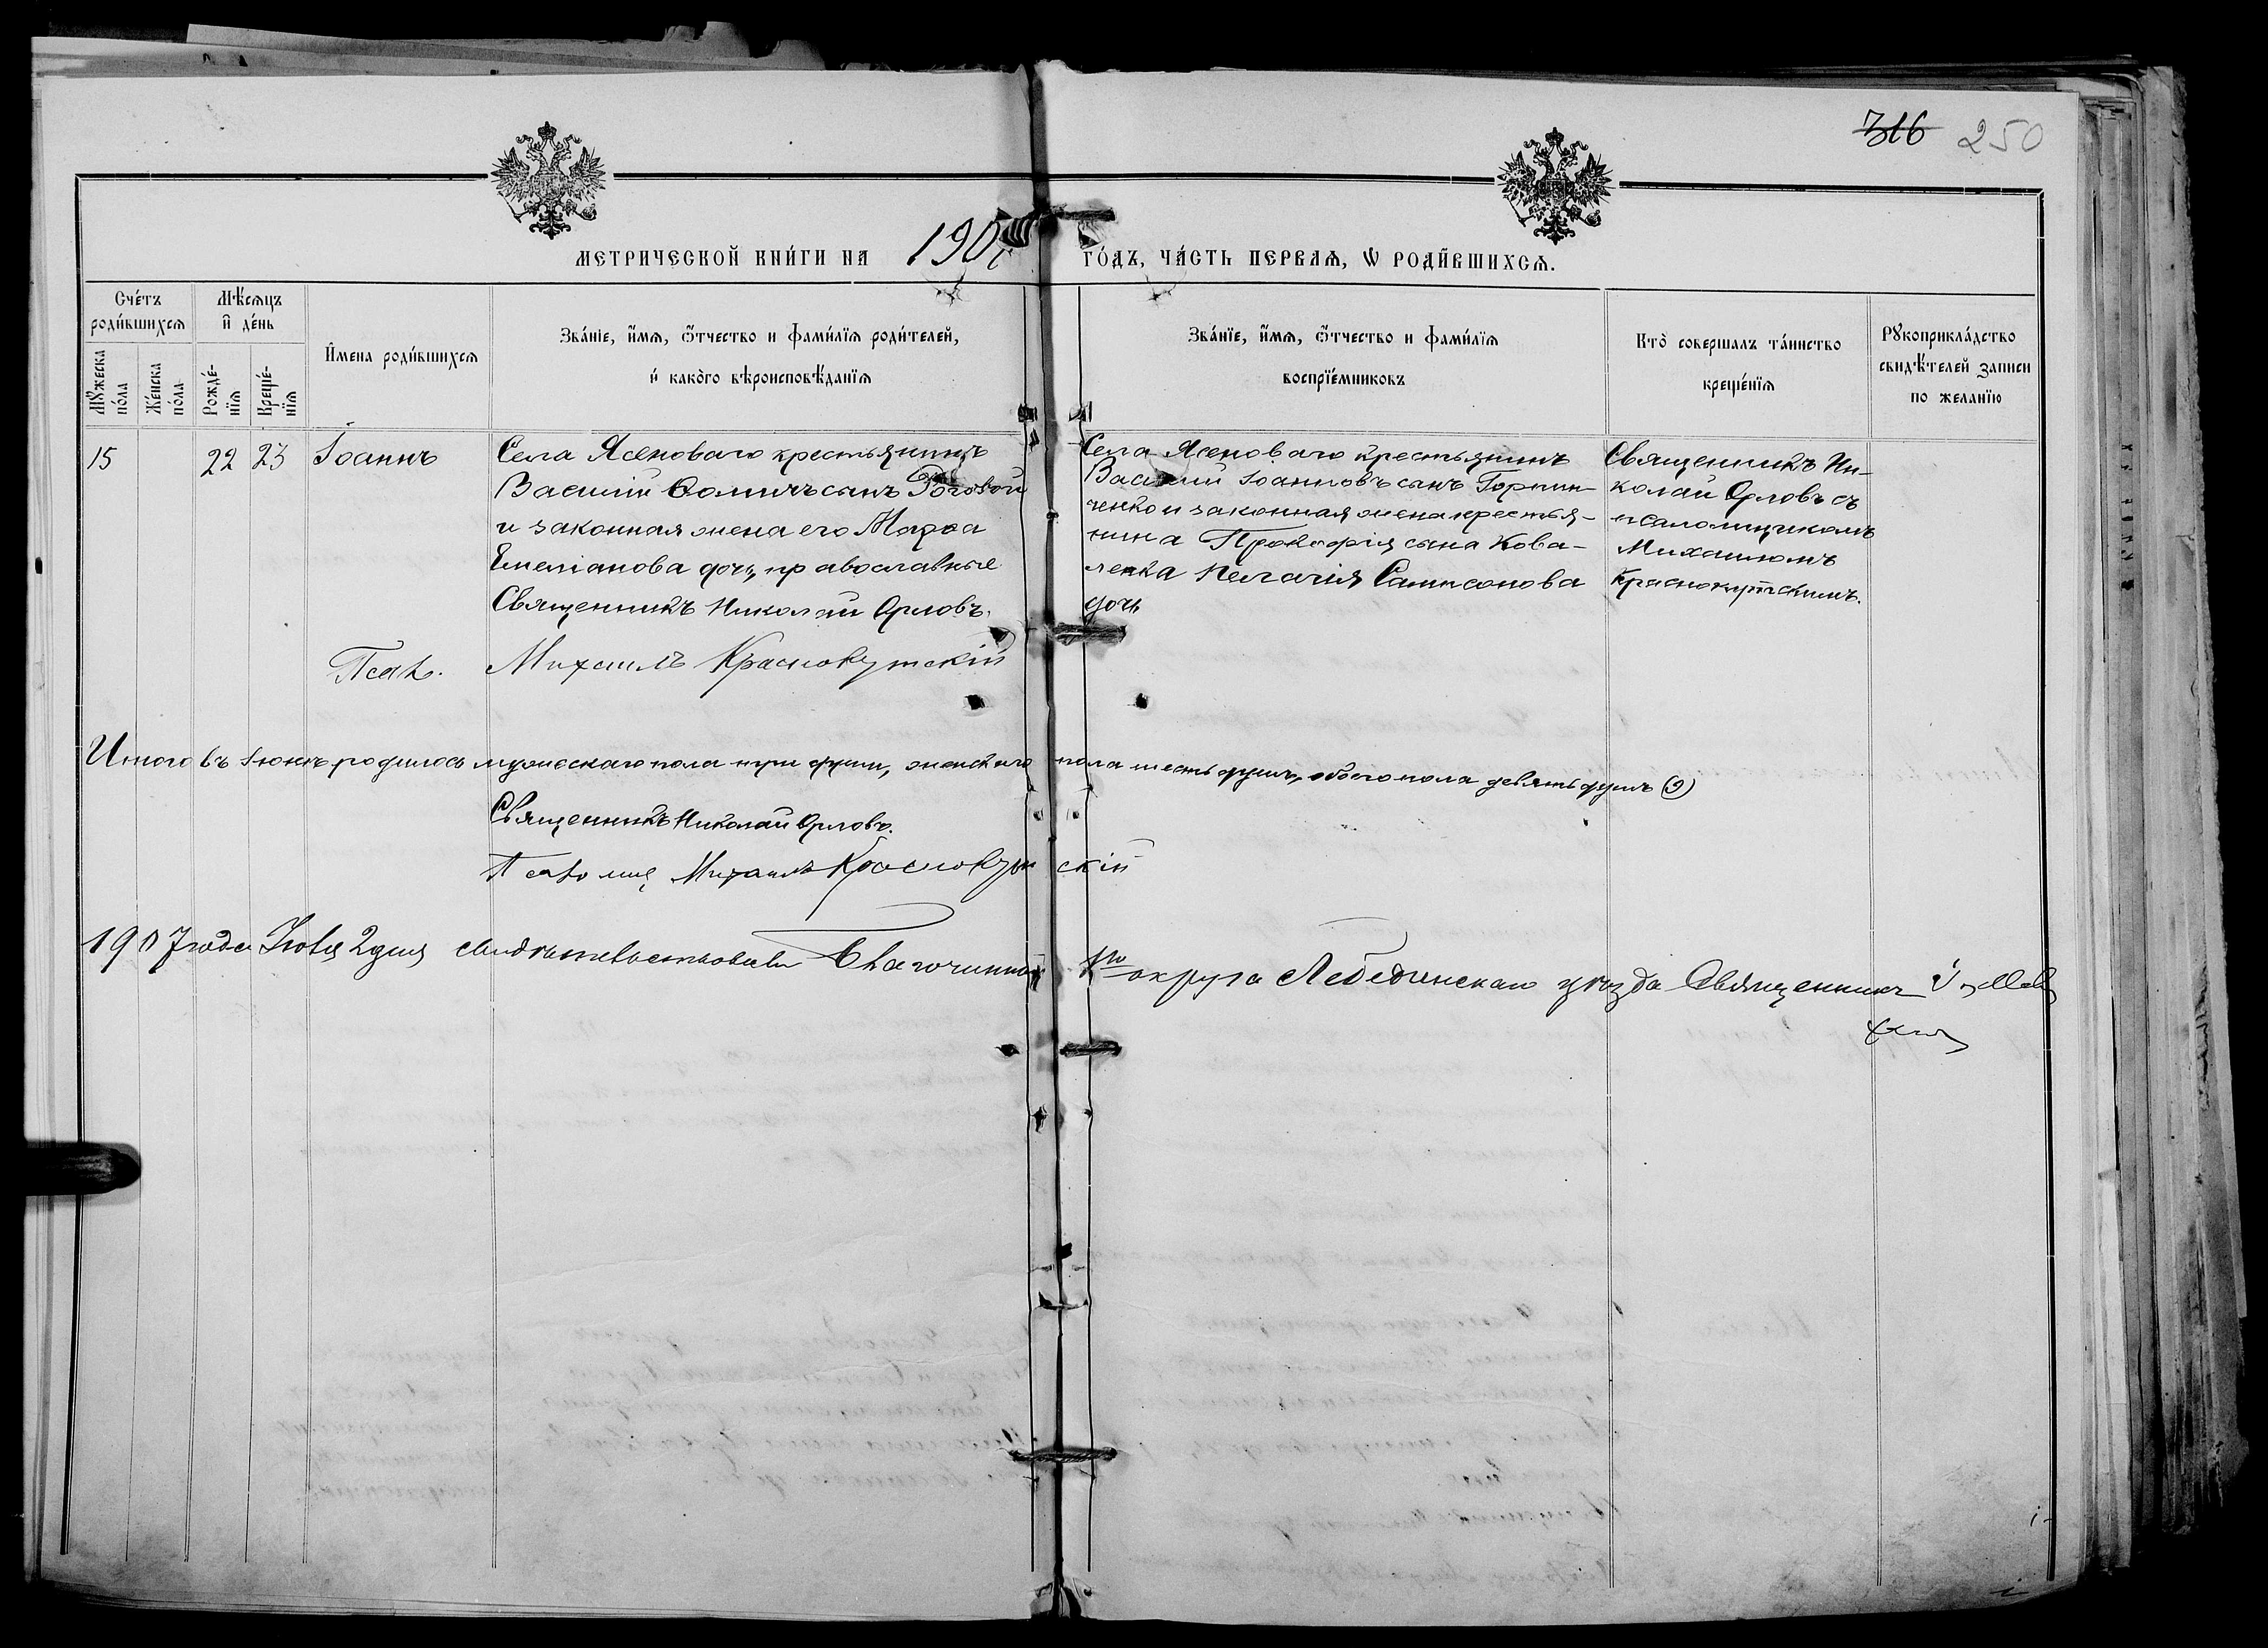 316 250
МЕТРИЧЕСКОЙ КНИ́ГИ НА 190 ГО́ДЪ, ЧА́СТЬ ПЕРВАѦ, Ѡ РОДИ́ВШИХСѦ.
Сче́тъ роди́вшихсѧ
Мѣ́сѧцъ и де́нь
Мꙋ́жеска по́ла
Же́нска по́ла
Рожде́-нїѧ
Креще́-нїѧ
И҆мена роди́вшихсѧ
Зва́нїе, и҆́мѧ, ѻ҆́тчество и фами́лїѧ роди́телей,
и҆ како́го вѣроисповѣ́данїѧ
Зва́нїе, и҆́мѧ, ѻ҆́тчество и фами́лїѧ
воспрїе́мниковъ
Кто̀ совершалъ та́инство
креще́нїѧ
Рꙋкоприкла́дство
свидѣ́телей записи
по желанїю
15 22 23 Іоаннъ
Села Ясеноваго крестьянинъ
Василій Ѳомичъ сынъ Роговой
и законная жена его Марѳа
Емеліанова дочь, православные
Священникъ Николай Орловъ.
Псал. Михаилъ Краснокутскій
Села Ясеноваго крестьянинъ
Василій Іоанновъ сынъ Горпин-
ченко и законная жена крестья-
нина Прокофія сына Кова-
ленка Пелагія Сампсонова
дочь
Священникъ Ни-
колай Орловъ съ
псаломщикомъ
Михаиломъ
Краснокутскимъ.
Итого въ Іюнѣ родилось мужескаго пола три души, женскаго пола шесть душъ, обоего пола девять душъ (9)
Священникъ Николай Орловъ.
Псаломщ Михаилъ Краснокутскій
1907 года Іюля 2 дня свидѣтельствовалъ Благочинный 1го округа Лебединскаго уѣзда Священникъ